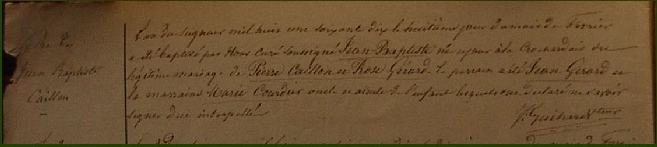 L'an du Seigneur mil huit cent soixante dix le huitième jour du mois de Février
a été baptisé par Nous Curé Soussigné Jean Baptiste né ce jour à la du
légitime mariage de Pierre Caillon et Rose Gérard. Le parrain a été Jean Gérard et
la marraine Marie Courdier oncle et aïnte de l'enfant lesquels ont déclaré ne savoir
signer de ce interpellés
Jean Baptiste
Caillon